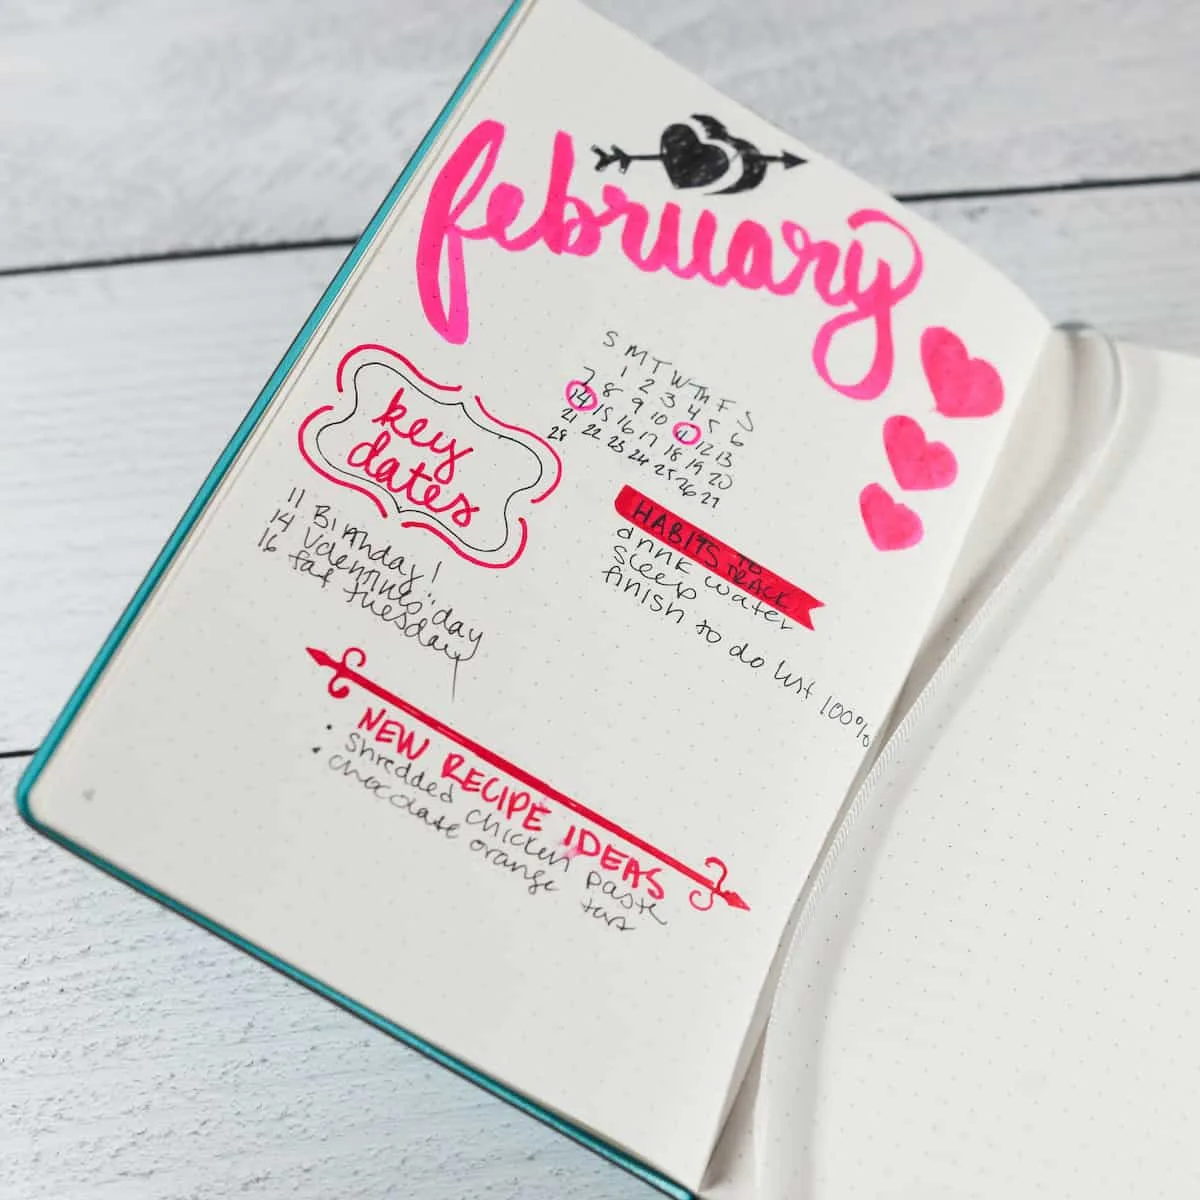 february
S M T W Th F S
1 2 3 4 5 6
7 8 9 10 11 12 13
14 15 16 17 18 19 20
21 22 23 24 25 26 27
28
key
dates
11 Birthday!
14 Valentines day
16 fat tuesday
HABITS TO TRACK
drink water
sleep
finish to do list 100%
NEW RECIPE IDEAS
• shredded chicken pasta
• chocolate orange tart
4